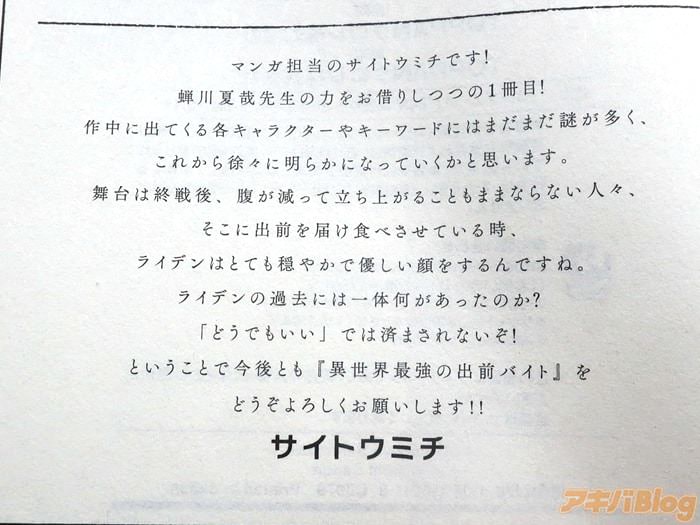 マンガ担当のサイトウミチです!
蝉川夏哉先生の力をお借りしつつの1冊目!
作中に出てくる各キャラクターやキーワードにはまだまだ謎が多く、
これから徐々に明らかになっていくかと思います。
舞台は終戦後、腹が減って立ち上がることもままならない人々、
そこに出前を届け食べさせている時、
ライデンはとても穏やかで優しい顔をするんですね。
ライデンの過去には一体何があったのか?
「どうでもいい」では済まされないぞ!
ということで今後とも『異世界最強の出前バイト』を
どうぞよろしくお願いします!!
サイトウミチ
アキバBlog